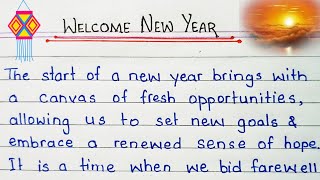 WELCOME NEW YEAR
The start of a new year brings with
a canvas of fresh opportunities,
allowing us to set new goals &
embrace a renewed sense of hope.
It is a time when we bid farewell